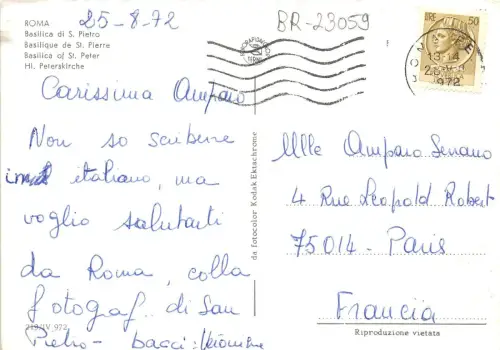 ROMA
Basilica di S. Pietro
Basilique de St. Pierre
Basilica of St. Peter
Hl. Peterskirche
25-8-72
BR-23059
LIRE 50
1972
Carissima Amparo
Non so scrivere
in italiano, ma
voglio salutarti
da Roma, colla
fotograf. di San
Pietro - bacci:
219/IV 972
da fotocolor Kodak Ektachrome
Mlle Amparo Serrano
4 Rue Léopold Robert
75014 - Paris
Francia
Riproduzione vietata